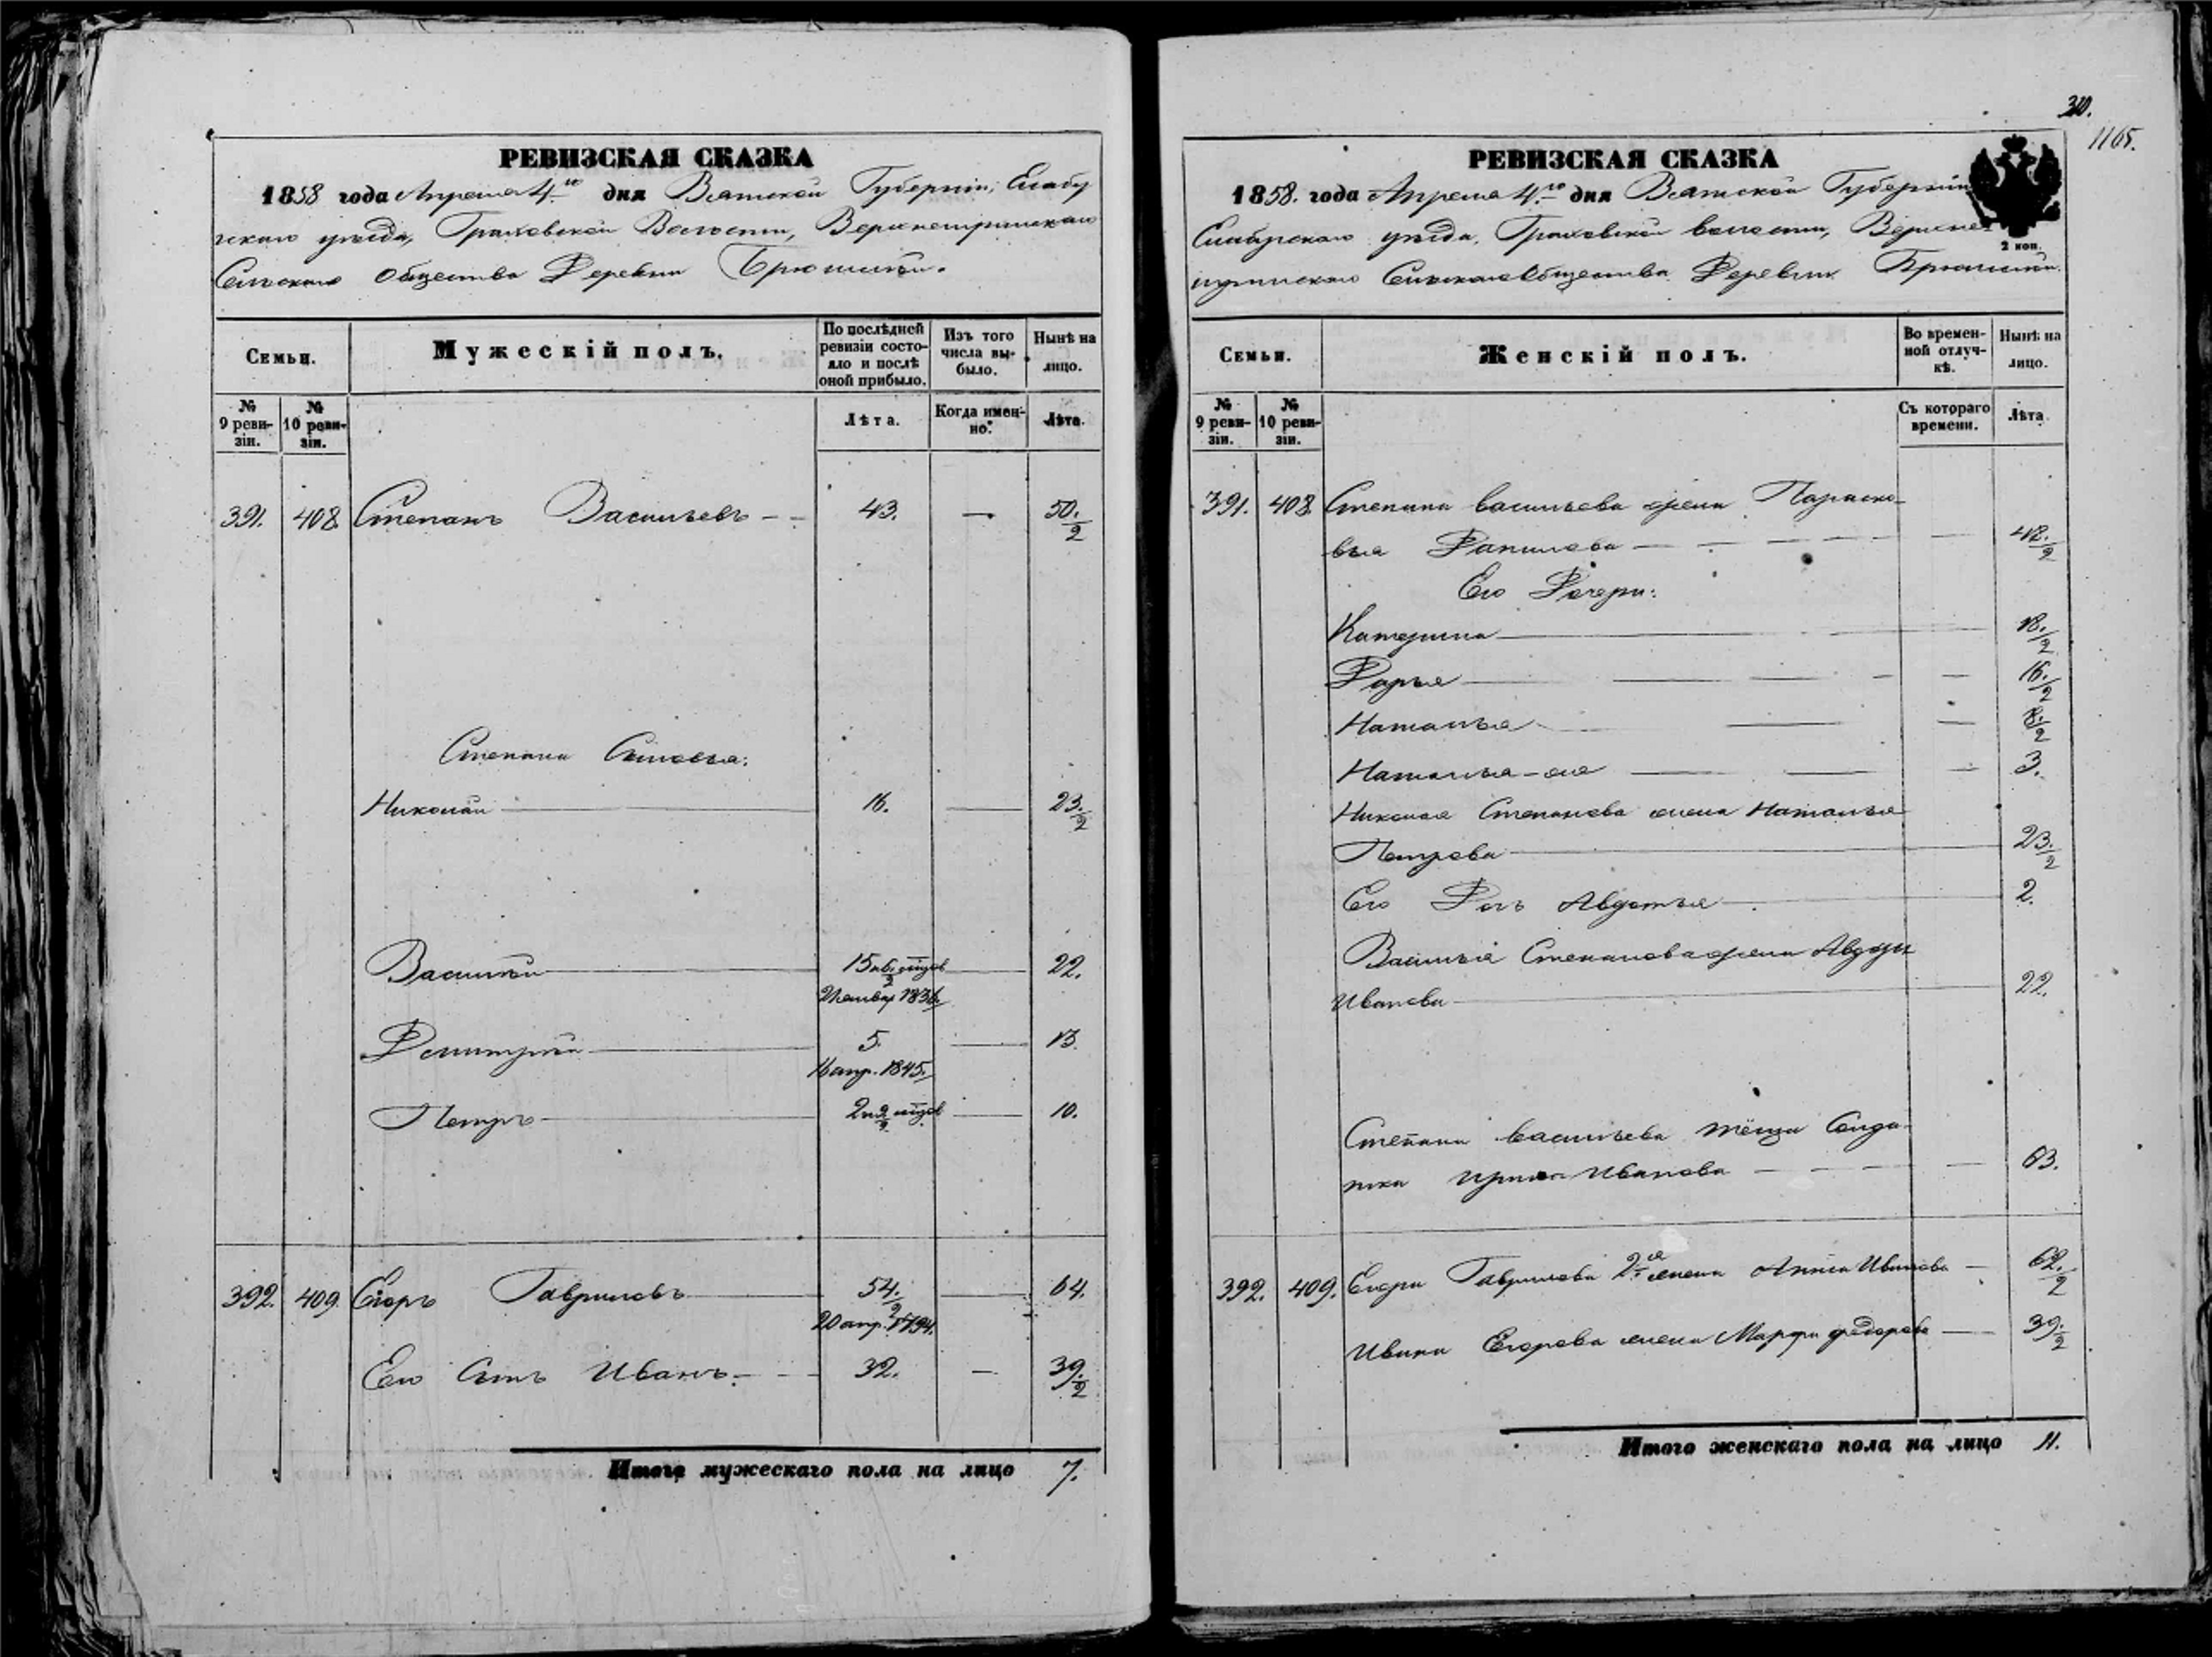 РЕВИЗСКАЯ СКАЗКА
1858 года Апреля 4го дня Вятской Губернiи, Елабу
жскаго уѣзда, Граховской Волости,
Сельскаго Общества Деревни
Семьи.
Мужескiй полъ.
По послѣдней ревизiи состояло и послѣ оной прибыло.
Изъ того числа выбыло.
Нынѣ на лицо.
№ 9 ревизiи.
№ 10 ревизiи.
Лѣта.
Когда именно.
Лѣта.
391. 408. Степанъ Васильевъ 43. — 50 1/2
Степана Сыновья:
Николай 16. — 23 1/2
Василiй 15 22.
1836.
Дмитрiй 5. — 13.
16 апр. 1845.
Петръ 10.
392. 409. Егоръ Гавриловъ 54 1/2 — 64.
20 апр. 1794.
Его Сынъ Иванъ 32. — 39 1/2
Итого мужескаго пола на лицо 7.
30.
1165.
РЕВИЗСКАЯ СКАЗКА
1858. года Апреля 4го дня Вятской Губернiи
Елабугскаго уѣзда, Граховской волости,
Сельскаго Общества Деревни
2 коп.
Семьи.
Женскiй полъ.
Во временной отлучкѣ.
Нынѣ на лицо.
№ 9 ревизiи.
№ 10 ревизiи.
Съ котораго времени.
Лѣта.
391. 408. Степана Васильева жена Параско-
вья Данилова
Его Дочери:
Катерина 18 1/2
Дарья 16 1/2
Наталья 8 1/2
Наталья 3.
Николая Степанова жена Наталья
Петрова 23 1/2
Его Дочь Авдотья 2.
Василья Степанова жена
Иванова 22.
Степана Васильева тёща Солда-
тка Иванова 63.
392. 409. Егора Гаврилова 2я жена Анна Иванова 62 1/2
Ивана Егорова жена Марфа Федорова 39 1/2
Итого женскаго пола на лицо 11.